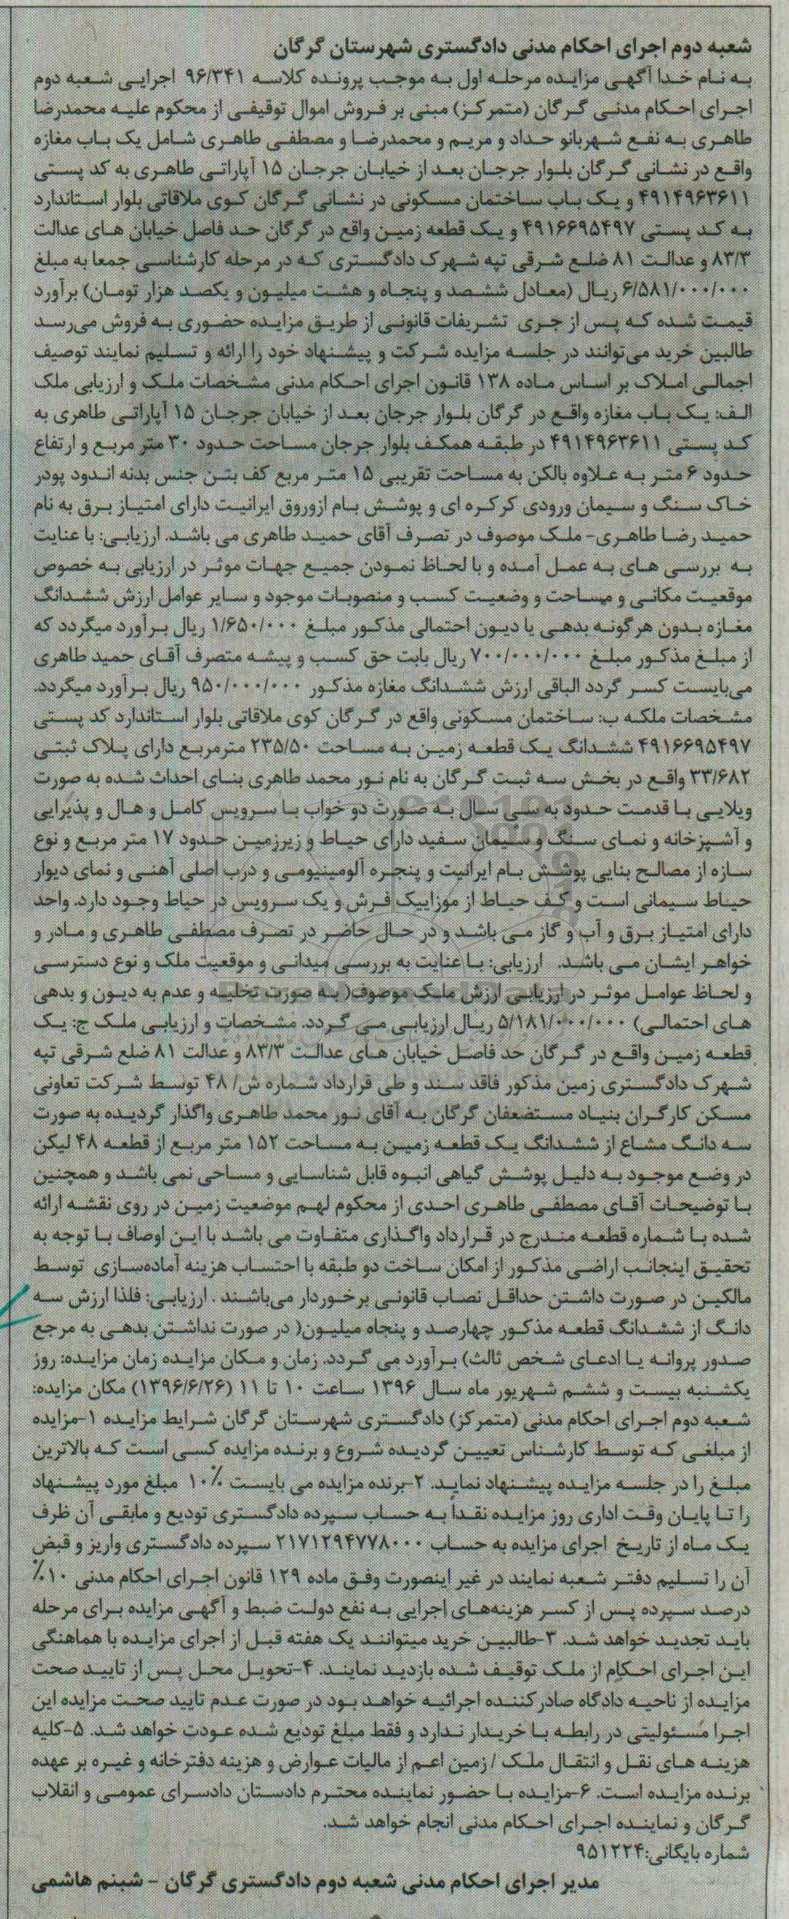 شعبه دوم اجرای احکام مدنی دادگستری شهرستان گرگان
به نام خدا آگهی مزایده مرحله اول به موجب پرونده کلاسه ۹۶/۳۴۱ اجرایی شعبه دوم
اجرای احکام مدنی گرگان (متمرکز) مبنی بر فروش اموال توقیفی از محکوم علیه محمدرضا
طاهری به نفع شهربانو حداد و مریم و محمدرضا و مصطفی طاهری شامل یک باب مغازه
واقع در نشانی گرگان بلوار جرجان بعد از خیابان جرجان ۱۵ آپاراتی طاهری به کد پستی
۴۹۱۴۹۶۳۶۱۱ و یک باب ساختمان مسکونی در نشانی گرگان کوی ملاقاتی بلوار استاندارد
به کد پستی ۴۹۱۶۶۹۵۴۹۷ و یک قطعه زمین واقع در گرگان حد فاصل خیابان های عدالت
۸۳/۳ و عدالت ۸۱ ضلع شرقی تپه شهرک دادگستری که در مرحله کارشناسی جمعا به مبلغ
۶/۵۸۱/۰۰۰/۰۰۰ ریال (معادل ششصد و پنجاه و هشت میلیون و یکصد هزار تومان) برآورد
قیمت شده که پس از جری تشریفات قانونی از طریق مزایده حضوری به فروش می‌رسد
طالبین خرید می‌توانند در جلسه مزایده شرکت و پیشنهاد خود را ارائه و تسلیم نمایند توصیف
اجمالی املاک بر اساس ماده ۱۳۸ قانون اجرای احکام مدنی مشخصات ملک و ارزیابی ملک
الف: یک باب مغازه واقع در گرگان بلوار جرجان بعد از خیابان جرجان ۱۵ آپاراتی طاهری به
کد پستی ۴۹۱۴۹۶۳۶۱۱ در طبقه همکف بلوار جرجان مساحت حدود ۳۰ متر مربع و ارتفاع
حدود ۶ متر به علاوه بالکن به مساحت تقریبی ۱۵ متر مربع کف بتن جنس بدنه اندود پودر
خاک سنگ و سیمان ورودی کرکره ای و پوشش بام ازوروق ایرانیت دارای امتیاز برق به نام
حمید رضا طاهری- ملک موصوف در تصرف آقای حمید طاهری می باشد. ارزیابی: با عنایت
به بررسی های به عمل آمده و با لحاظ نمودن جمیع جهات موثر در ارزیابی به خصوص
موقعیت مکانی و مساحت و وضعیت کسب و منصوبات موجود و سایر عوامل ارزش ششدانگ
مغازه بدون هرگونه بدهی یا دیون احتمالی مذکور مبلغ ۱/۶۵۰/۰۰۰ ریال برآورد میگردد که
از مبلغ مذکور مبلغ ۷۰۰/۰۰۰/۰۰۰ ریال بابت حق کسب و پیشه متصرف آقای حمید طاهری
می‌بایست کسر گردد الباقی ارزش ششدانگ مغازه مذکور ۹۵۰/۰۰۰/۰۰۰ ریال برآورد میگردد.
مشخصات ملکه ب: ساختمان مسکونی واقع در گرگان کوی ملاقاتی بلوار استاندارد کد پستی
۴۹۱۶۶۹۵۴۹۷ ششدانگ یک قطعه زمین به مساحت ۲۳۵/۵۰ مترمربع دارای پلاک ثبتی
۳۳/۶۸۲ واقع در بخش سه ثبت گرگان به نام نور محمد طاهری بنای احداث شده به صورت
ویلایی با قدمت حدود به سی سال به صورت دو خواب با سرویس کامل و هال و پذیرایی
و آشپزخانه و نمای سنگ و سیمان سفید دارای حیاط و زیرزمین حدود ۱۷ متر مربع و نوع
سازه از مصالح بنایی پوشش بام ایرانیت و پنجره آلومینیومی و درب اصلی آهنی و نمای دیوار
حیاط سیمانی است و کف حیاط از موزاییک فرش و یک سرویس در حیاط وجود دارد. واحد
دارای امتیاز برق و آب و گاز می باشد و در حال حاضر در تصرف مصطفی طاهری و مادر و
خواهر ایشان می باشد. ارزیابی: با عنایت به بررسی میدانی و موقعیت ملک و نوع دسترسی
و لحاظ عوامل موثر در ارزیابی ارزش ملک موصوف( به صورت تخلیه و عدم به دیون و بدهی
های احتمالی) ۵/۱۸۱/۰۰۰/۰۰۰ ریال ارزیابی می گردد. مشخصات و ارزیابی ملک ج: یک
قطعه زمین واقع در گرگان حد فاصل خیابان های عدالت ۸۳/۳ و عدالت ۸۱ ضلع شرقی تپه
شهرک دادگستری زمین مذکور فاقد سند و طی قرارداد شماره ش/ ۴۸ توسط شرکت تعاونی
مسکن کارگران بنیاد مستضعفان گرگان به آقای نور محمد طاهری واگذار گردیده به صورت
سه دانگ مشاع از ششدانگ یک قطعه زمین به مساحت ۱۵۲ متر مربع از قطعه ۴۸ لیکن
در وضع موجود به دلیل پوشش گیاهی انبوه قابل شناسایی و مساحی نمی باشد و همچنین
با توضیحات آقای مصطفی طاهری احدی از محکوم لهم موضعیت زمین در روی نقشه ارائه
شده با شماره قطعه مندرج در قرارداد واگذاری متفاوت می باشد با این اوصاف با توجه به
تحقیق اینجانب اراضی مذکور از امکان ساخت دو طبقه با احتساب هزینه آماده‌سازی توسط
مالکین در صورت داشتن حداقل نصاب قانونی برخوردار می‌باشند . ارزیابی: فلذا ارزش سه
دانگ از ششدانگ قطعه مذکور چهارصد و پنجاه میلیون( در صورت نداشتن بدهی به مرجع
صدور پروانه یا ادعای شخص ثالث) برآورد می گردد. زمان و مکان مزایده زمان مزایده: روز
یکشنبه بیست و ششم شهریور ماه سال ۱۳۹۶ ساعت ۱۰ تا ۱۱ (۱۳۹۶/۶/۲۶) مکان مزایده:
شعبه دوم اجرای احکام مدنی (متمرکز) دادگستری شهرستان گرگان شرایط مزایده ۱-مزایده
از مبلغی که توسط کارشناس تعیین گردیده شروع و برنده مزایده کسی است که بالاترین
مبلغ را در جلسه مزایده پیشنهاد نماید. ۲-برنده مزایده می بایست ۱۰٪ مبلغ مورد پیشنهاد
را تا پایان وقت اداری روز مزایده نقداً به حساب سپرده دادگستری تودیع و مابقی آن ظرف
یک ماه از تاریخ اجرای مزایده به حساب ۲۱۷۱۲۹۴۷۷۸۰۰۰ سپرده دادگستری واریز و قبض
آن را تسلیم دفتر شعبه نمایند در غیر اینصورت وفق ماده ۱۲۹ قانون اجرای احکام مدنی ۱۰٪
درصد سپرده پس از کسر هزینه‌های اجرایی به نفع دولت ضبط و آگهی مزایده برای مرحله
باید تجدید خواهد شد. ۳-طالبین خرید میتوانند یک هفته قبل از اجرای مزایده با هماهنگی
این اجرای احکام از ملک توقیف شده بازدید نمایند. ۴-تحویل محل پس از تایید صحت
مزایده از ناحیه دادگاه صادرکننده اجرائیه خواهد بود در صورت عدم تایید صحت مزایده این
اجرا مسئولیتی در رابطه با خریدار ندارد و فقط مبلغ تودیع شده عودت خواهد شد. ۵-کلیه
هزینه های نقل و انتقال ملک / زمین اعم از مالیات عوارض و هزینه دفترخانه و غیره بر عهده
برنده مزایده است. ۶-مزایده با حضور نماینده محترم دادستان دادسرای عمومی و انقلاب
گرگان و نماینده اجرای احکام مدنی انجام خواهد شد.
شماره بایگانی:۹۵۱۲۲۴
مدیر اجرای احکام مدنی شعبه دوم دادگستری گرگان - شبنم هاشمی